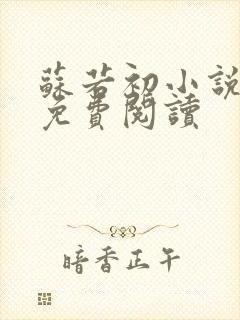 蘇若初小說
免費閱讀
暗香正午